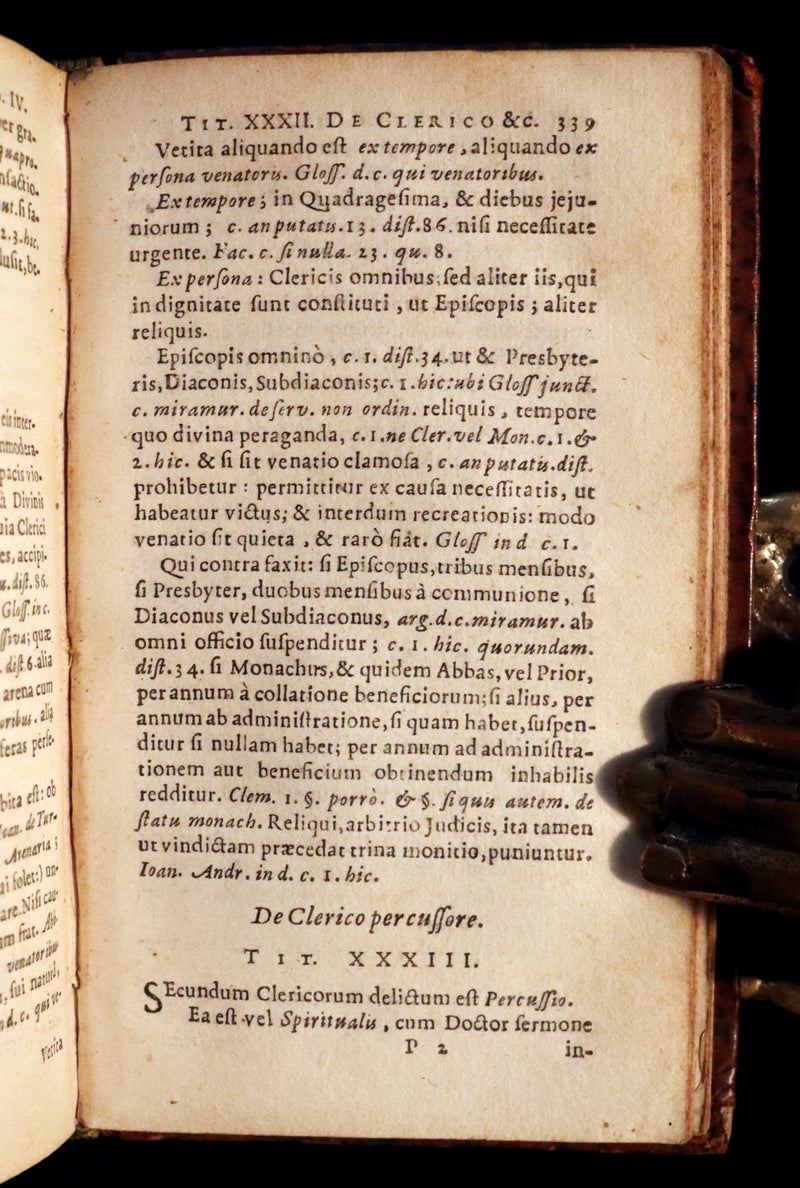 TIT. XXXII. DE CLERICO &c. 339
Vetita aliquando eſt ex tempore, aliquando ex
perſona venatoris. Gloſſ. d. c. qui venatoribus.
Ex tempore; in Quadrageſima, & diebus jeju-
niorum; c. an putatis. 13. diſt. 86. niſi neceſſitate
urgente. Fac. c. ſi nulla. 23. qu. 8.
Ex perſona: Clericis omnibus; ſed aliter iis, qui
in dignitate ſunt conſtituti, ut Epiſcopis; aliter
reliquis.
Epiſcopis omninò, c. 1. diſt. 34. ut & Presbyte-
ris, Diaconis, Subdiaconis; c. 1. hic: ubi Gloſſ junct.
c. miramur. de ſerv. non ordin. reliquis, tempore
quo divina peraganda, c. 1. ne Cler. vel Mon. c. 1. &
2. hic. & ſi ſit venatio clamoſa, c. an putatis. diſt.
prohibetur: permittitur ex cauſa neceſſitatis, ut
habeatur victus; & interdum recreationis: modo
venatio ſit quieta, & rarò fiat. Gloſſ in d c. 1.
Qui contra faxit: ſi Epiſcopus, tribus menſibus,
ſi Presbyter, duobus menſibus à communione, ſi
Diaconus vel Subdiaconus, arg. d. c. miramur. ab
omni officio ſuſpenditur; c. 1. hic. quorundam.
diſt. 34. ſi Monachus, & quidem Abbas, vel Prior,
per annum à collatione beneficiorum; ſi alius, per
annum ab adminiſtratione, ſi quam habet, ſuſpen-
ditur ſi nullam habet; per annum ad adminiſtra-
tionem aut beneficium obtinendum inhabilis
redditur. Clem. 1. §. porrò. & §. ſi quis autem. de
ſtatu monach. Reliqui, arbitrio Judicis, ita tamen
ut vindictam præcedat trina monitio, puniuntur.
Ioan. Andr. in d. c. 1. hic.
De Clerico percuſſore.
TIT. XXXIII.
SEcundum Clericorum delictum eſt Percuſſio.
Ea eſt vel Spiritualis, cum Doctor ſermone
P 2 in-